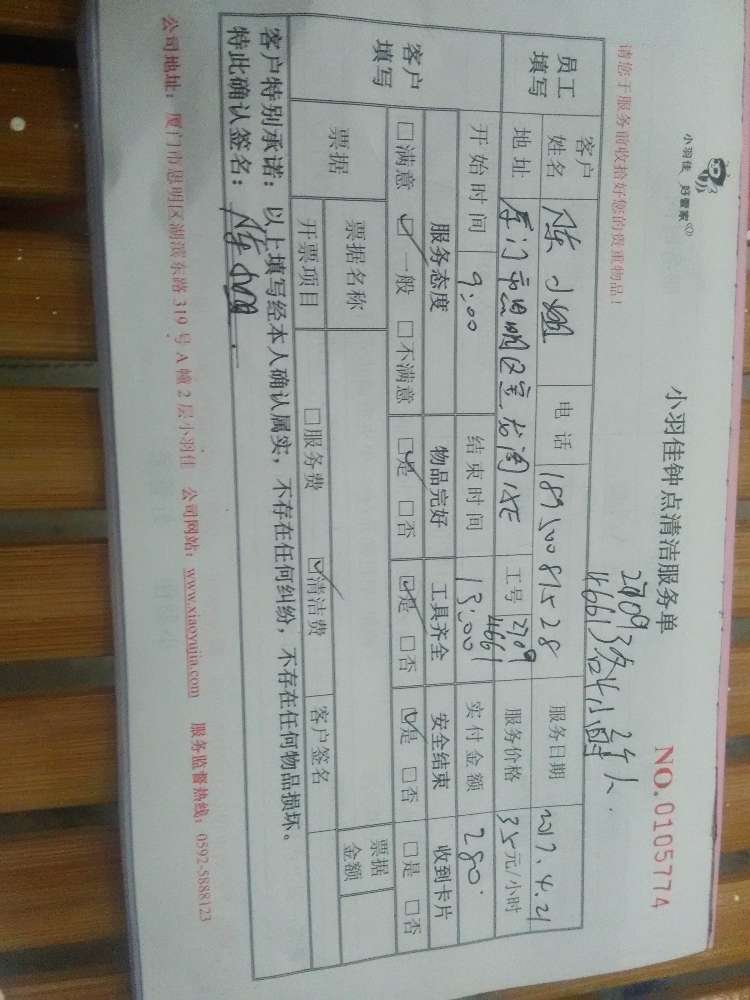 小羽佳 好管家
小羽佳钟点清洁服务单
NO.0105774
请您于服务前收拾好您的贵重物品！
2709
4661 3名 4小时 2人.
员工填写
客户姓名 陈小姐 电话 18950081528 服务日期 2017.4.21
地址 厦门市思明区 18E 工号 2709 4661 服务价格 35元/小时
客户填写
开始时间 9:00 结束时间 13:00 实付金额 280.
服务态度 物品完好 工具齐全 安全结束 收到卡片
□满意 ☑一般 □不满意 ☑是 □否 ☑是 □否 ☑是 □否 □是 □否
票据 票据名称 票据金额
开票项目 □服务费 ☑清洁费 客户签名
客户特别承诺：以上填写经本人确认属实，不存在任何纠纷，不存在任何物品损坏。
特此确认签名：陈
公司地址：厦门市思明区湖滨东路319号A幢2层小羽佳 公司网站：www.xiaoyujia.com 服务监督热线：0592-5888123